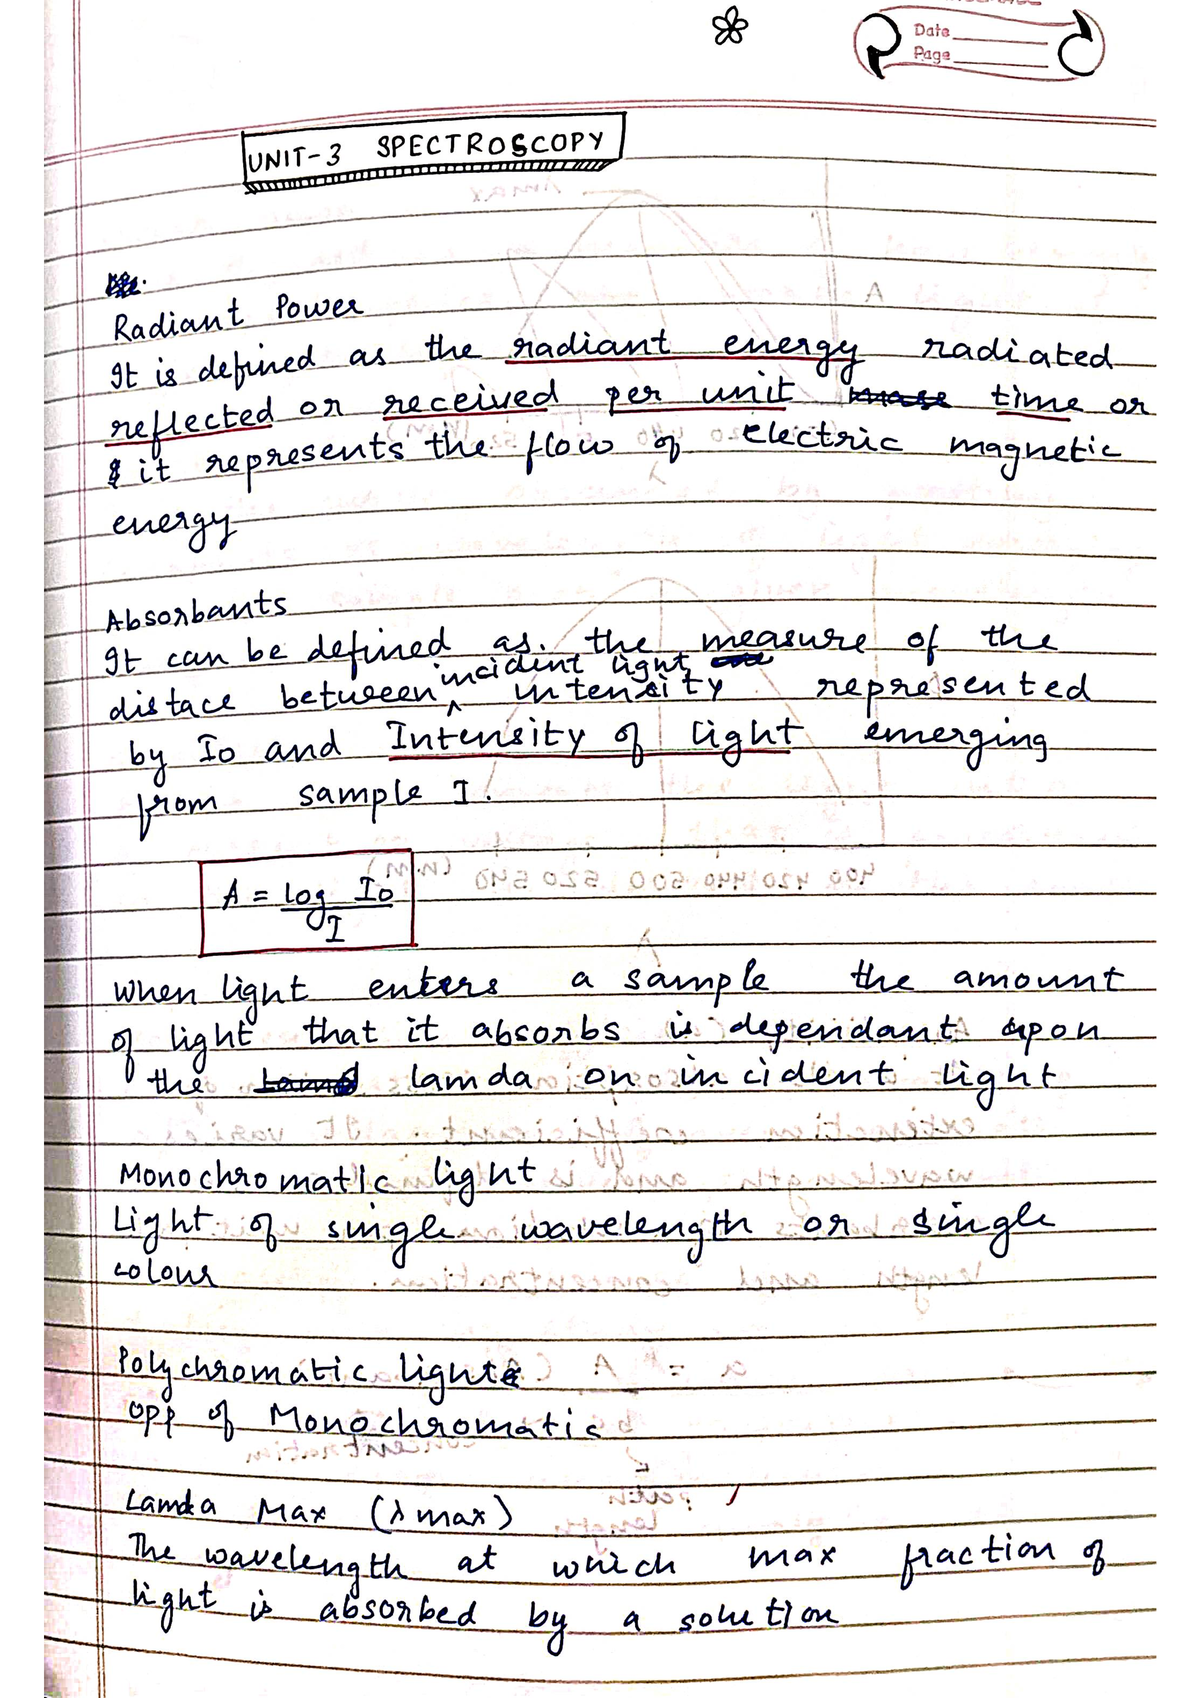 Date
Page
UNIT-3 SPECTROSCOPY
Radiant Power
It is defined as the radiant energy radiated
reflected or received per unit time or
& it represents the flow of electric magnetic
energy
Absorbants
It can be defined as. the measure of the
incident light
distace between ^ intensity represented
by Io and Intensity of light emerging
from sample I.
A = log Io
I
When light enters a sample the amount
of light that it absorbs is dependant upon
the lamda on incident light
Monochromatic light
Light of single wavelength or single
colour
Polychromatic light
opp of Monochromatic
Lamda Max (λ max)
The wavelength at which max fraction of
light is absorbed by a solution